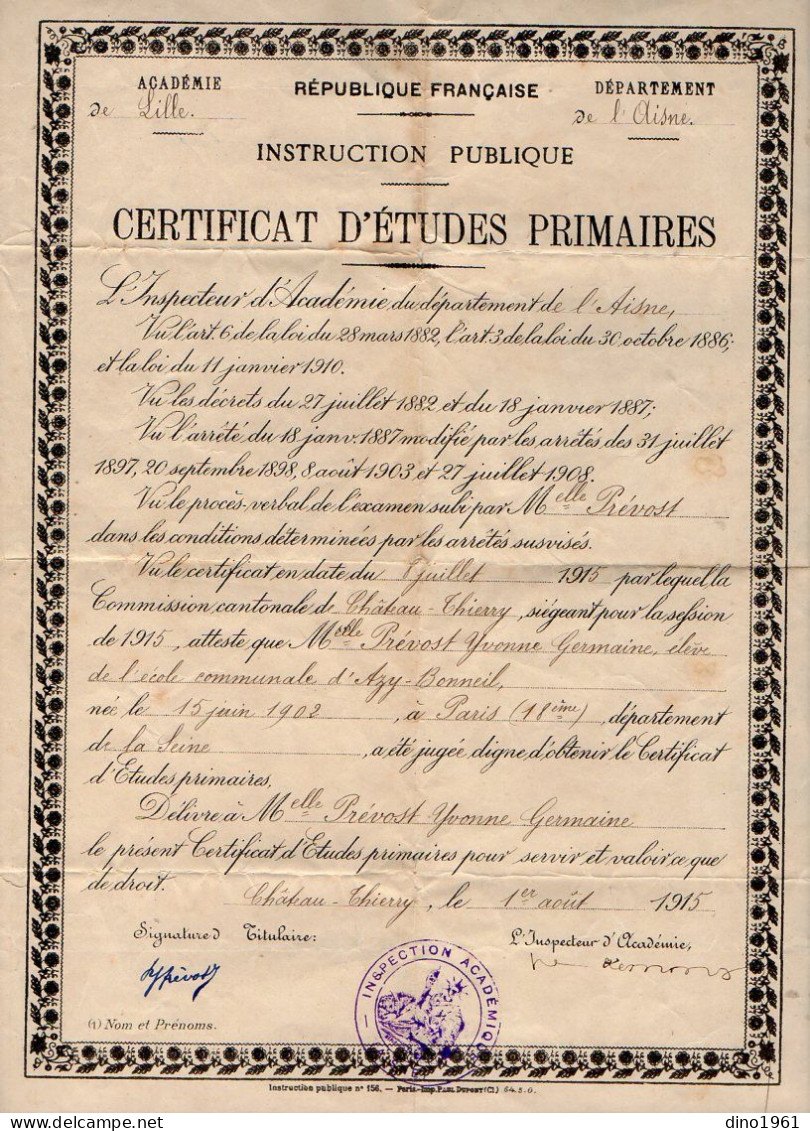 ACADÉMIE
de Lille.
RÉPUBLIQUE FRANÇAISE
DÉPARTEMENT
de l'Aisne.
INSTRUCTION PUBLIQUE
CERTIFICAT D'ÉTUDES PRIMAIRES
L'Inspecteur d'Académie du département de l'Aisne,
Vu l'art. 6 de la loi du 28 mars 1882, l'art. 3 de la loi du 30 octobre 1886;
et la loi du 11 janvier 1910.
Vu les décrets du 27 juillet 1882 et du 18 janvier 1887;
Vu l'arrêté du 18 janv. 1887 modifié par les arrêtés des 31 juillet
1897, 20 septembre 1898, 8 août 1903 et 27 juillet 1908.
Vu le procès-verbal de l'examen subi par Melle Prévost
dans les conditions déterminées par les arrêtés susvisés.
Vu le certificat en date du 8 juillet 1915 par lequel la
Commission cantonale de Château-Thierry, siégeant pour la session
de 1915, atteste que Melle Prévost Yvonne Germaine, élève
de l'école communale d'Azy-Bonneil,
née le 15 juin 1902, à Paris (18ème), département
de la Seine, a été jugée digne d'obtenir le Certificat
d'Etudes primaires.
Délivré à Melle Prévost Yvonne Germaine
le présent Certificat d'Etudes primaires pour servir et valoir ce que
de droit.
Château-Thierry, le 1er août 1915
Signature d Titulaire:
L'Inspecteur d'Académie,
YPrévost
INSPECTION ACADÉMIQUE
(1) Nom et Prénoms.
Instruction publique n° 156. — Paris.-Imp. PAUL DUPONT (Cl.) 64.5.0.
dino1961